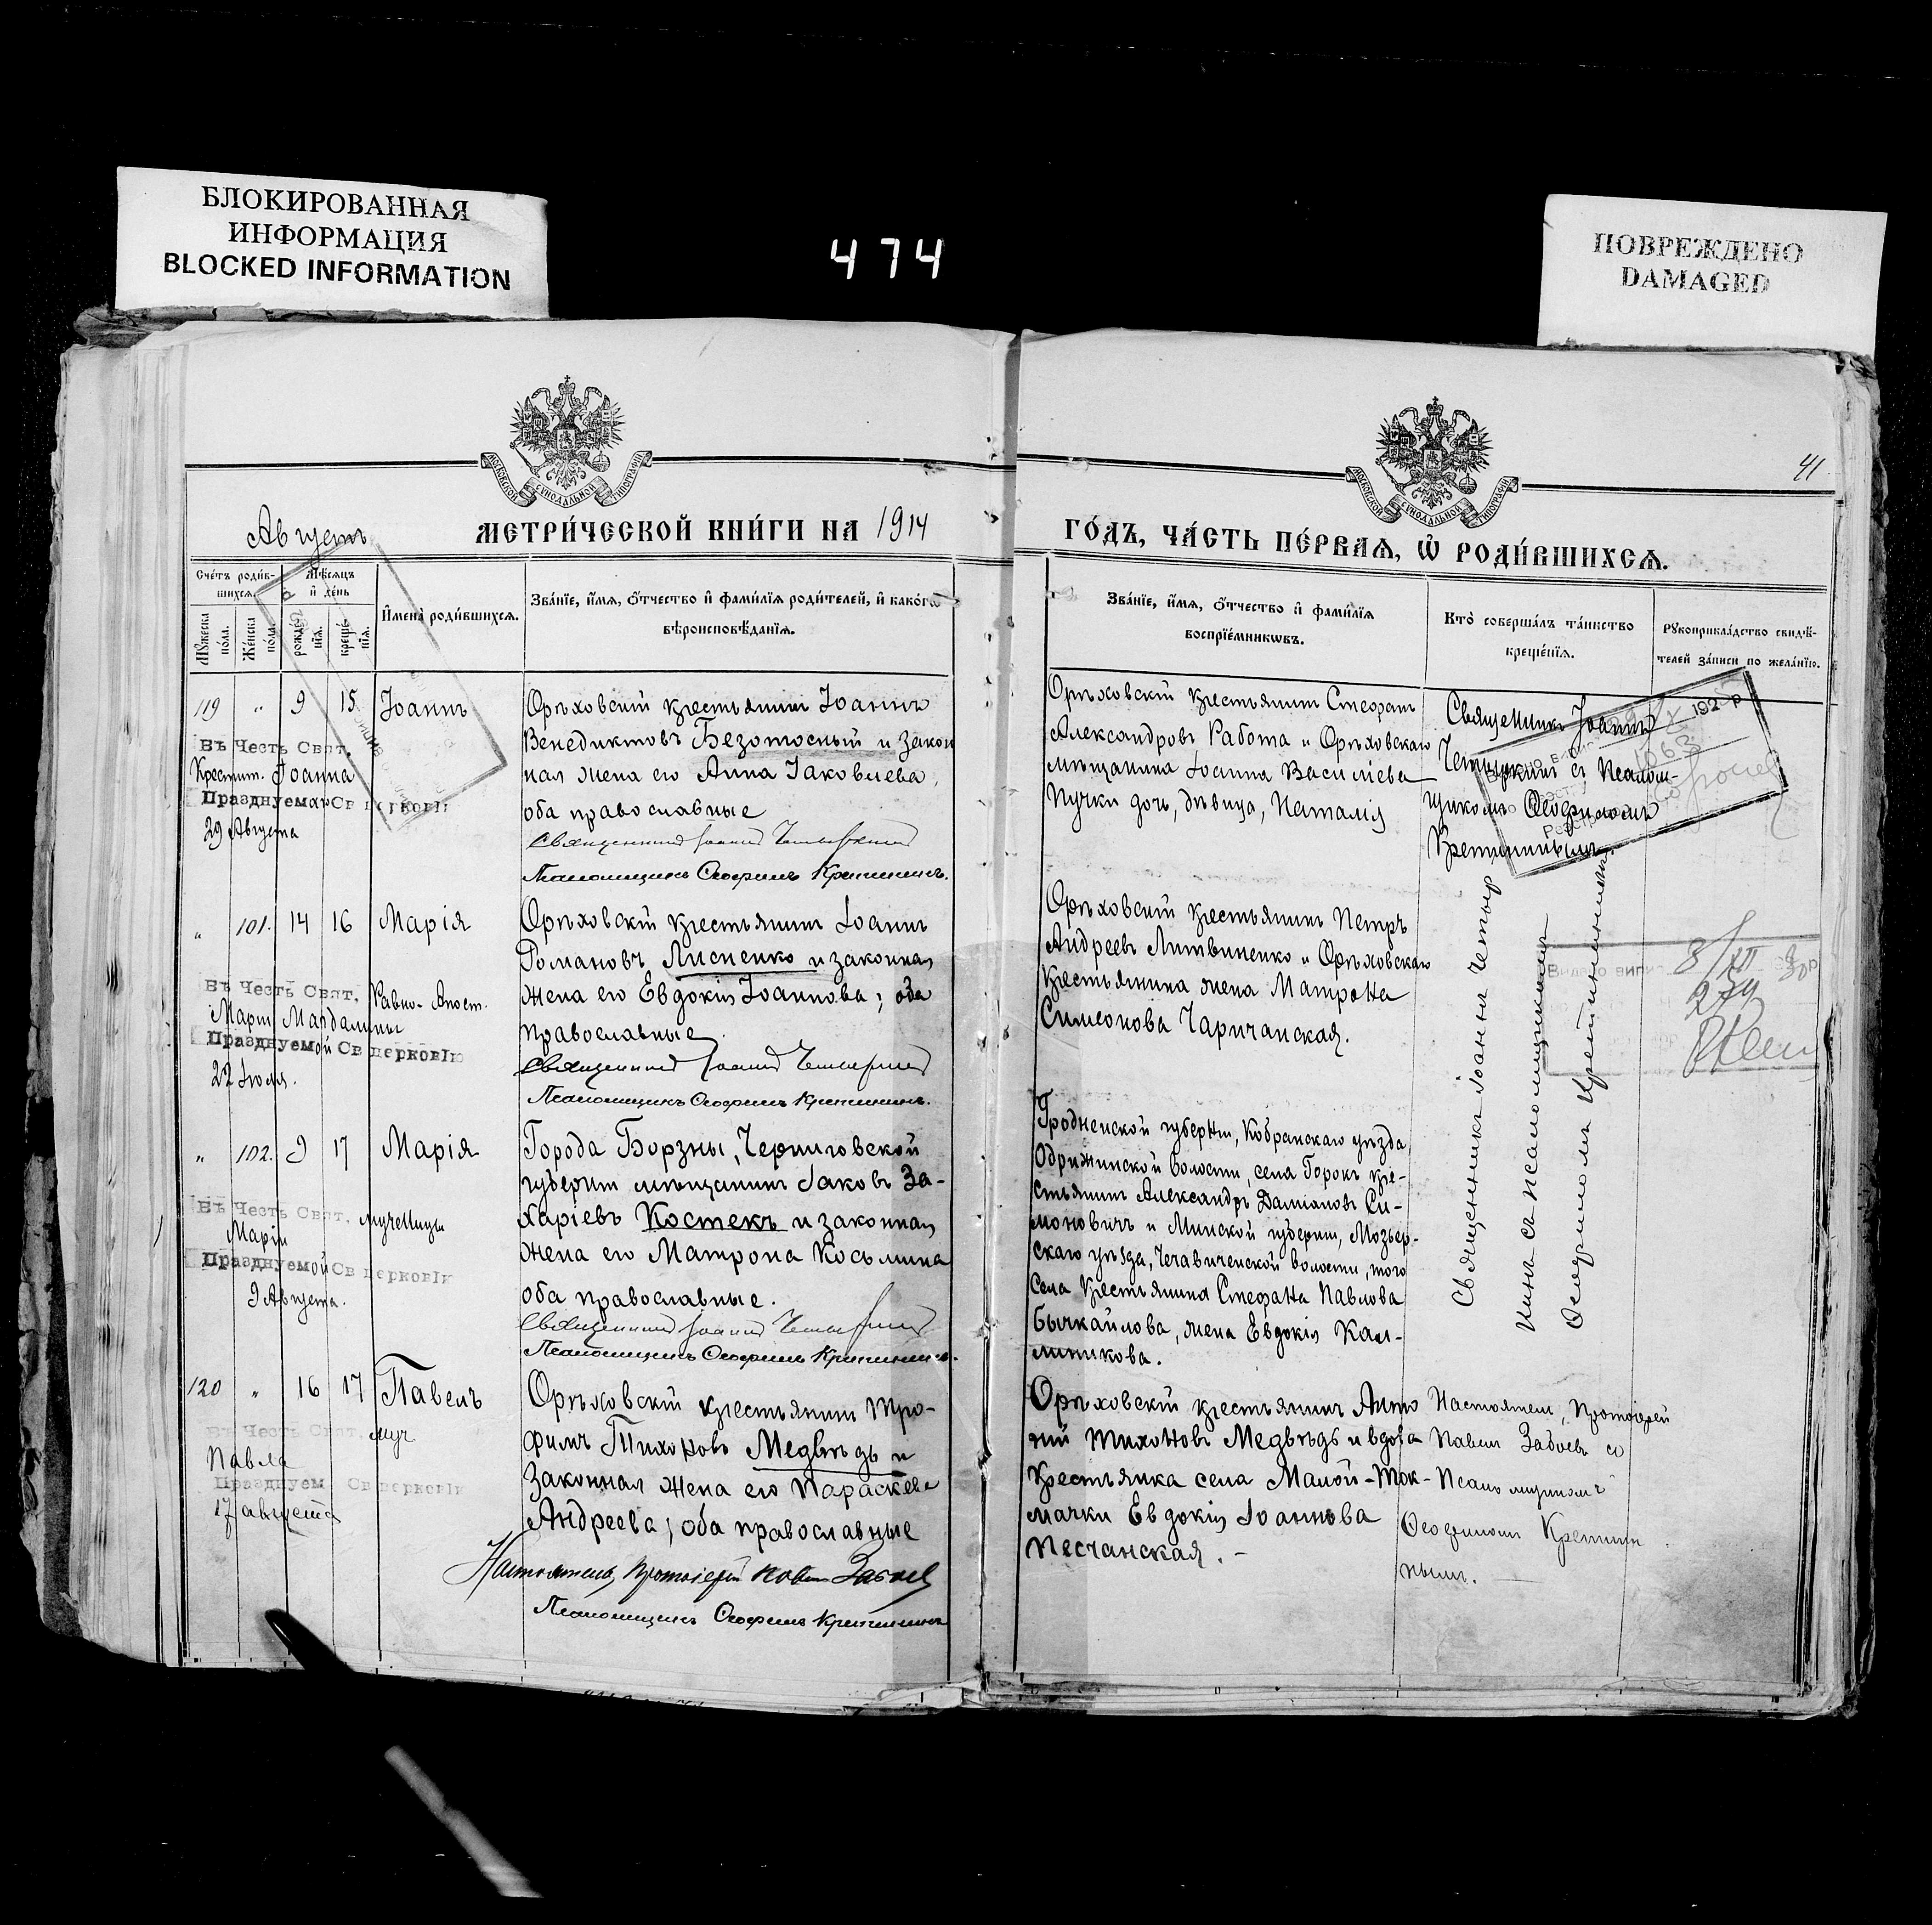 БЛОКИРОВАННАЯ
ИНФОРМАЦИЯ
BLOCKED INFORMATION
474
ПОВРЕЖДЕНО
DAMAGED
41.
Августъ
МЕТРИ́ЧЕСКОЙ КНИ́ГИ НА 1914
ГО́ДЪ, ЧА́СТЬ ПЕ́РВАѦ, Ѽ РОДИ́ВШИХСѦ.
Сче́тъ роди́в-
шихсѧ.
Мѣ́сѧцъ
и де́нь
Мꙋ́жеска по́ла.
Же́нска по́ла.
рожде́-нїѧ.
креще́-нїѧ.
И҆мена̀ роди́вшихсѧ.
Зва́нїе, и҆́мѧ, ѻ҆́тчество и҆ фами́лїѧ роди́телей, и҆ како́гѡ
вѣроисповѣ́данїѧ.
Зва́нїе, и҆́мѧ, ѻ҆́тчество и҆ фами́лїѧ
воспрїе́мникѡвъ.
Кто̀ соверша́лъ та́инство
креще́нїѧ.
Рꙋкоприкла́дство свидѣ́-
телей за́писи по жела́нїю.
119 " 9 15 Іоаннъ
Въ Честь Свят.
Крестит. Іоанна
Празднуемаго Св церковію
29 Августа
Орѣховскій крестьянинъ Іоаннъ
Венедиктовъ Безотосный и закон
ная жена его Анна Іаковлева,
оба православные
Священникъ Іоаннъ Четыркинъ
Псаломщикъ Ѳеофилъ Кретининъ.
Орѣховскій крестьянинъ Стефанъ
Александровъ Работа и Орѣховскаго
мѣщанина Іоанна Василіева
Пучки дочь, дѣвица, Наталія
Священникъ Іоаннъ
Четыркинъ съ Псалом-
щикомъ Ѳеофиломъ
Кретининымъ.
192 р
1063
" 101. 14 16 Марія
Въ Честь Свят. Равно-Апост.
Маріи Магдалины
Празднуемой Св церковію
22 Іюля.
Орѣховскій крестьянинъ Іоаннъ
Романовъ Лисненко и законная
жена его Евдокія Іоаннова; оба
православные
Священникъ Іоаннъ Четыркинъ
Псаломщикъ Ѳеофилъ Кретининъ.
Орѣховскій крестьянинъ Петръ
Андреевъ Литвиненко и Орѣховскаго
крестьянина жена Матрона
Симеонова Чаричанская.
Священникъ Іоаннъ Четыр
кинъ съ псаломщикомъ
Ѳеофиломъ Кретининымъ
Видано випис
8/XII 30р
" 102. 9 17 Марія
Въ Честь Свят. мученицы
Маріи
Празднуемой Св церковію
9 Августа.
Города Борзны, Черниговской
губерніи мѣщанинъ Іаковъ За-
харіевъ Костекъ и законная
жена его Матрона Косьмина
оба православные.
Священникъ Іоаннъ Четыркинъ
Псаломщикъ Ѳеофилъ Кретининъ.
Гродненской губерніи, Кобринскаго уѣзда,
Одрижинской волости, села Горокъ кре-
стьянинъ Александръ Даміановъ Си-
моновичъ и Минской губерніи, Мозыр-
скаго уѣзда, волости, того
села крестьянина Стефана Павлова
Бычкайлова, жена Евдокія Кал-
линикова.
120 " 16 17 Павелъ
Въ Честь Свят. муч
Павла
Празднуем Св церковію
17 августа
Орѣховскій крестьянинъ Тро-
фимъ Тихоновъ Медвѣдь и
законная жена его Параскева
Андреева; оба православные
Настоятель, Протоіерей Павелъ Забоевъ
Псаломщикъ Ѳеофилъ Кретининъ
Орѣховскій крестьянинъ Анто
ній Тихоновъ Медвѣдь и вдова
крестьянка села Малой-Ток-
мачки Евдокія Іоаннова
Песчанская. —
Настоятель, Протоіерей
Павелъ Забоевъ со
Псаломщикомъ
Ѳеофиломъ Кретини
нымъ. —